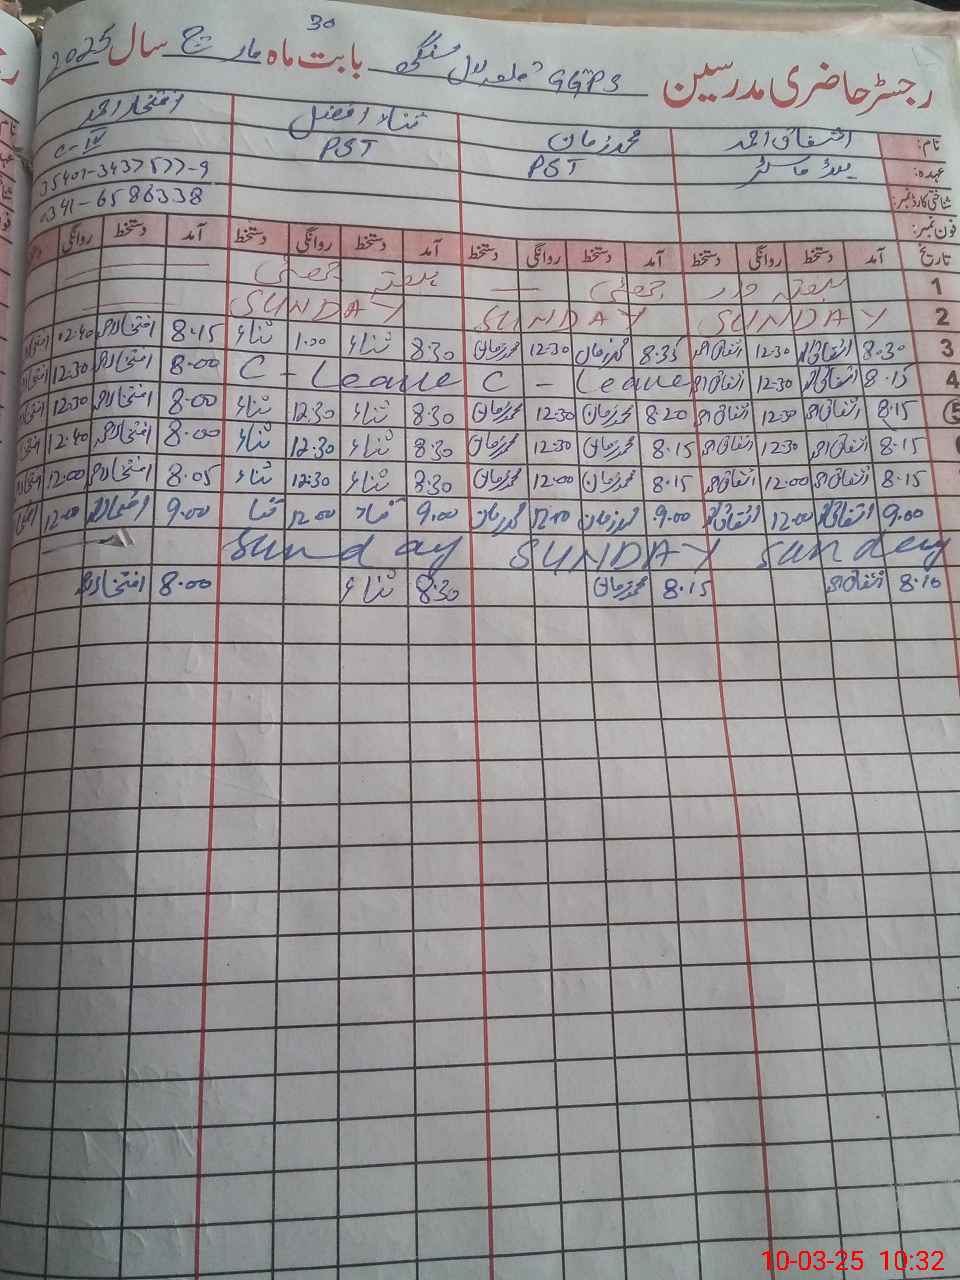 رجسٹر حاضری مدرسین GGPS قلعہ لال سنگھ بابت ماہ مارچ سال 2025
30
نام: اشفاق احمد محمد زمان ثناء افضل افتخار احمد
عہدہ: ہیڈ ماسٹر PST PST C-IV
شناختی کارڈ نمبر: 35401-3437577-9
فون نمبر: 0341-6586338
تاریخ آمد دستخط روانگی دستخط آمد دستخط روانگی دستخط آمد دستخط روانگی دستخط آمد دستخط روانگی
1 ہفتہ وار چھٹی ہفتہ چھٹی
2 SUNDAY SUNDAY SUNDAY
3 8.30 اشفاق احمد 12.30 اشفاق احمد 8.35 محمد زمان 12.30 محمد زمان 8.30 ثناء 1.00 ثناء 8.15 افتخار احمد 12.40
4 8.15 اشفاق احمد 12.30 اشفاق احمد C - Leave C - Leave 8.00 افتخار احمد 12.30
5 8.15 اشفاق احمد 12.30 اشفاق احمد 8.20 محمد زمان 12.30 محمد زمان 8.30 ثناء 12.30 ثناء 8.00 افتخار احمد 12.30
8.15 اشفاق احمد 12.30 اشفاق احمد 8.15 محمد زمان 12.30 محمد زمان 8.30 ثناء 12.30 ثناء 8.00 افتخار احمد 12.40
8.15 اشفاق احمد 12.00 اشفاق احمد 8.15 محمد زمان 12.00 محمد زمان 8.30 ثناء 12.30 ثناء 8.05 افتخار احمد 12.00
9.00 اشفاق احمد 12.00 اشفاق احمد 9.00 محمد زمان 12.00 محمد زمان 9.00 ثناء 12.00 ثناء 9.00 افتخار احمد 12.00
Sunday SUNDAY Sunday
8.10 اشفاق احمد 8.15 محمد زمان 8.30 ثناء 8.00 افتخار احمد
10-03-25 10:32